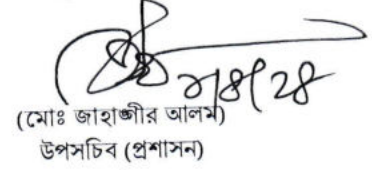 (মোঃ জাহাঙ্গীর আলম)
উপসচিব (প্রশাসন)